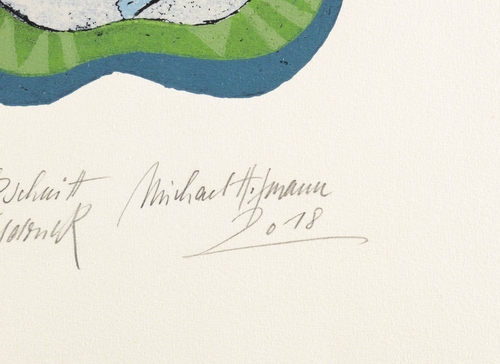 schnitt Michael Hofmann
2018